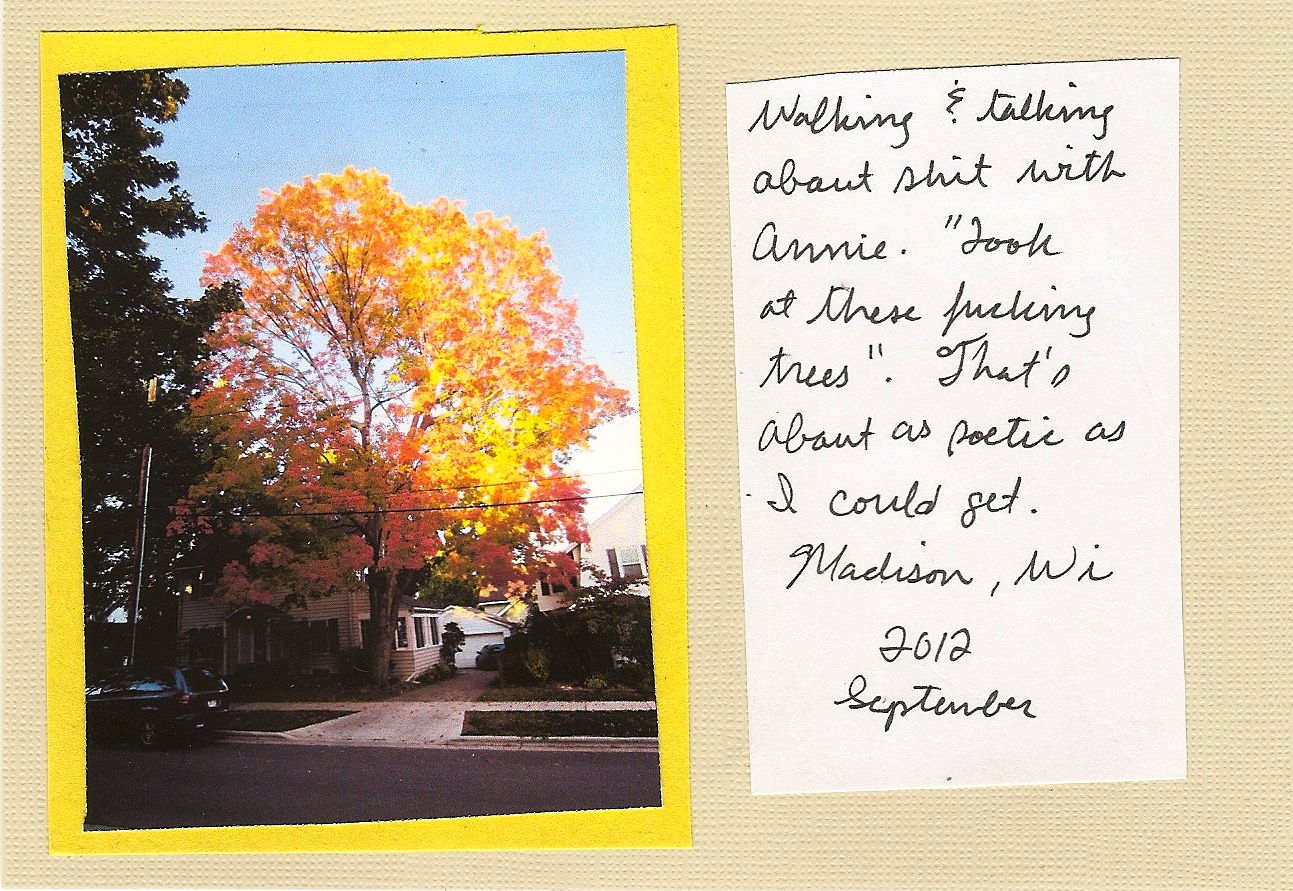 Walking & talking
about shit with
Annie. "Look
at these fucking
trees". That's
about as poetic as
I could get.
Madison, Wi
2012
September